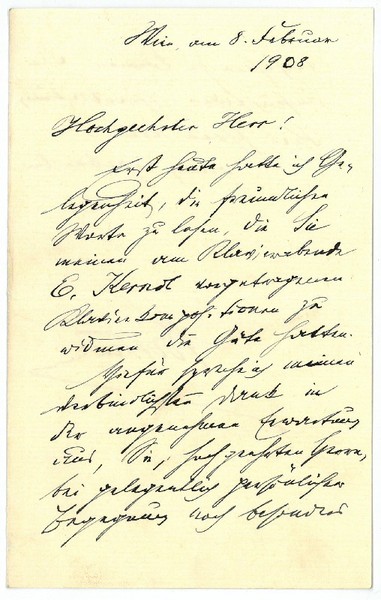 Wien, am 8. Februar
1908
Hochgeehrter Herr!
Erst heute hatte ich Ge-
legenheit, die freundlichen
Worte zu lesen, die Sie
meinen am Klavierabende
E. Kerndl vorgetragenen
Klavierkompositionen zu
widmen die Güte hatten.
Hiefür spreche ich meinen
verbindlichsten Dank in
der angenehmen Erwartung
aus, Sie, hochgeehrten Herrn,
bei gelegentlich persönlicher
Begegnung noch besonders